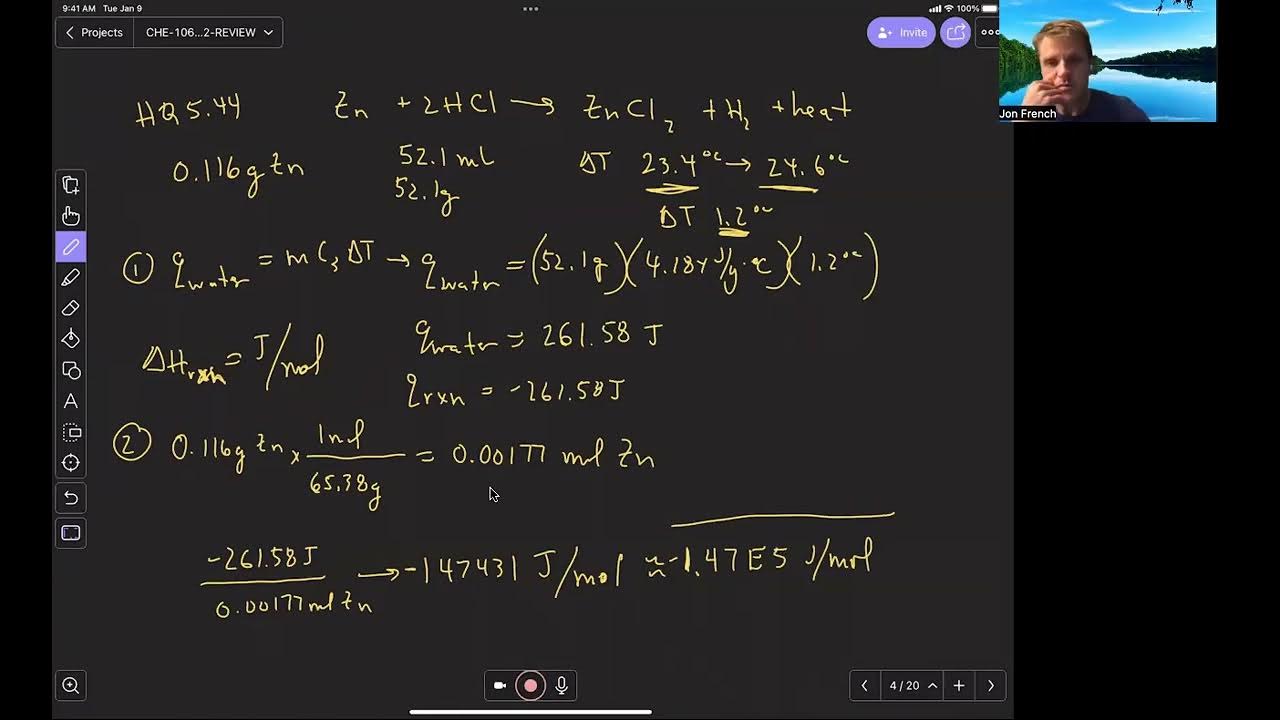 9:41 AM Tue Jan 9
100%
Projects
CHE-106...2-REVIEW
Invite
Jon French
HQ 5.44 Zn + 2HCl → ZnCl₂ + H₂ + heat
0.116g Zn 52.1 ml ΔT 23.4°C → 24.6°C
52.1g
ΔT 1.2°C
① q water = m Cs ΔT → q water = (52.1g)(4.184 J/g·°C)(1.2°C)
q water = 261.58 J
ΔHrxn = J/mol
q rxn = -261.58 J
② 0.116g Zn × 1mol / 65.38g = 0.00177 mol Zn
-261.58 J / 0.00177 mol Zn → -147431 J/mol ≈ -1.47E5 J/mol
A
4 / 20